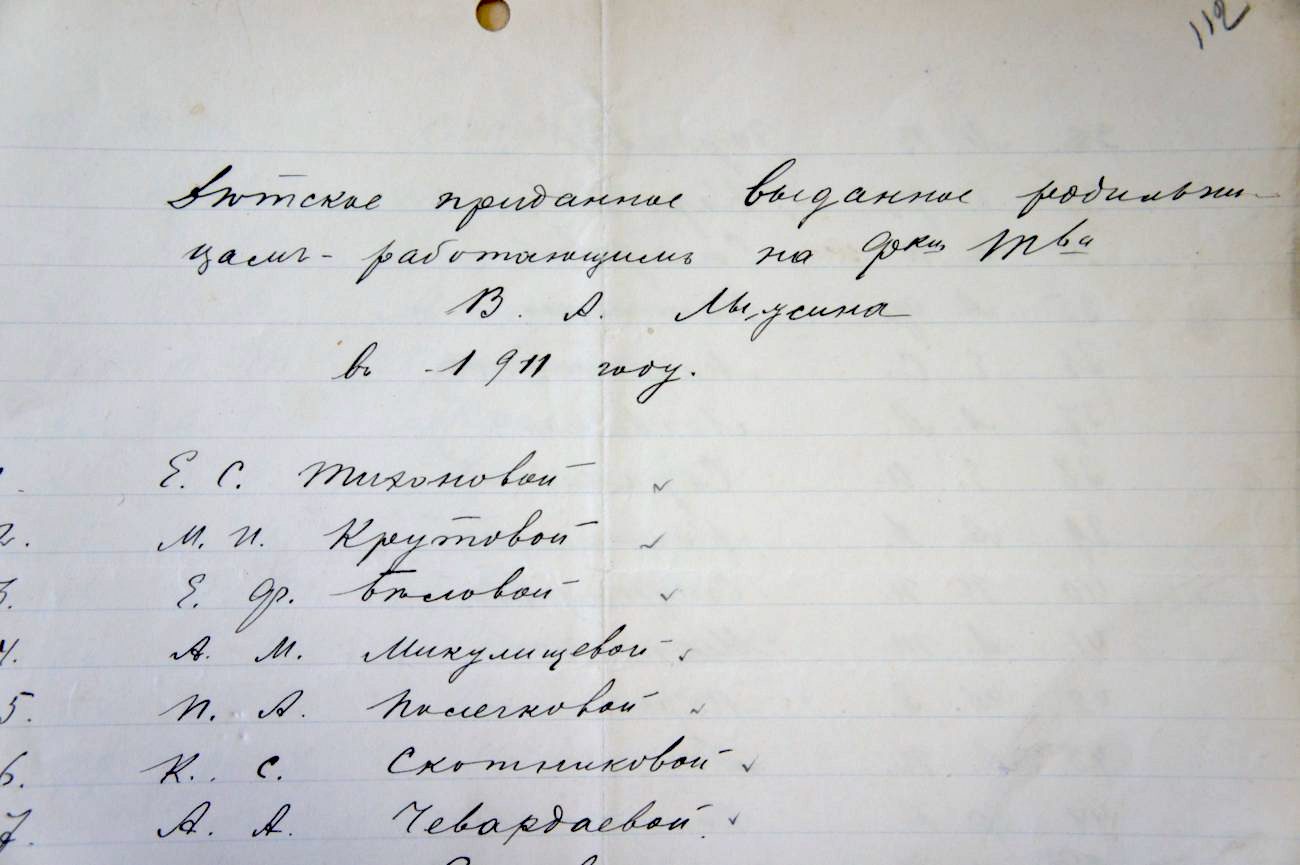 112
Дѣтское приданное выданное родильни-
цамъ - работающимъ на фкѣ Тва
В. А.
въ 1911 году.
Е. С. Тихоновой
2. М. И. Крутовой
3. Е. Ф. Бѣловой
4. А. М. Микулищевой
5. П. А. Полечковой
6. К. С. Скотниковой
7. А. А. Чевардаевой